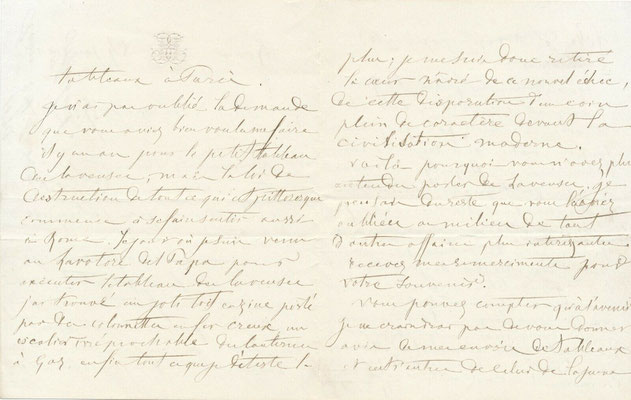 tableaux à Paris.
je n'ai pas oublié la demande
que vous aviez bien voulu me faire
il y a un an pour le petit tableau
des laveuses, mais la loi de
destruction de tout ce qui est pittoresque
commence à se faire sentir aussi
à Rome. le jour où je suis venu
au Lavatoire del Papa pour
exécuter le tableau des laveuses
j'ai trouvé un joli toit en zinc porté
par des colonnettes en fer creux, un
escalier irréprochable des lanternes
à gaz, enfin tout ce que je déteste le
plus; je me suis donc retiré
le cœur navré de ce nouvel échec,
de cette disparition d'un coin
plein de caractère devant la
civilisation moderne.
Voilà pourquoi vous n'avez plus
entendu parler de Laveuses, je
pensais du reste que vous l'aviez
oubliée au milieu de tant
d'autres affaires plus intéressantes
recevez mes remerciements pour
votre souvenir.
Vous pouvez compter qu'à l'avenir
je ne craindrai pas de vous donner
avis de mes envois de tableaux
de celui de